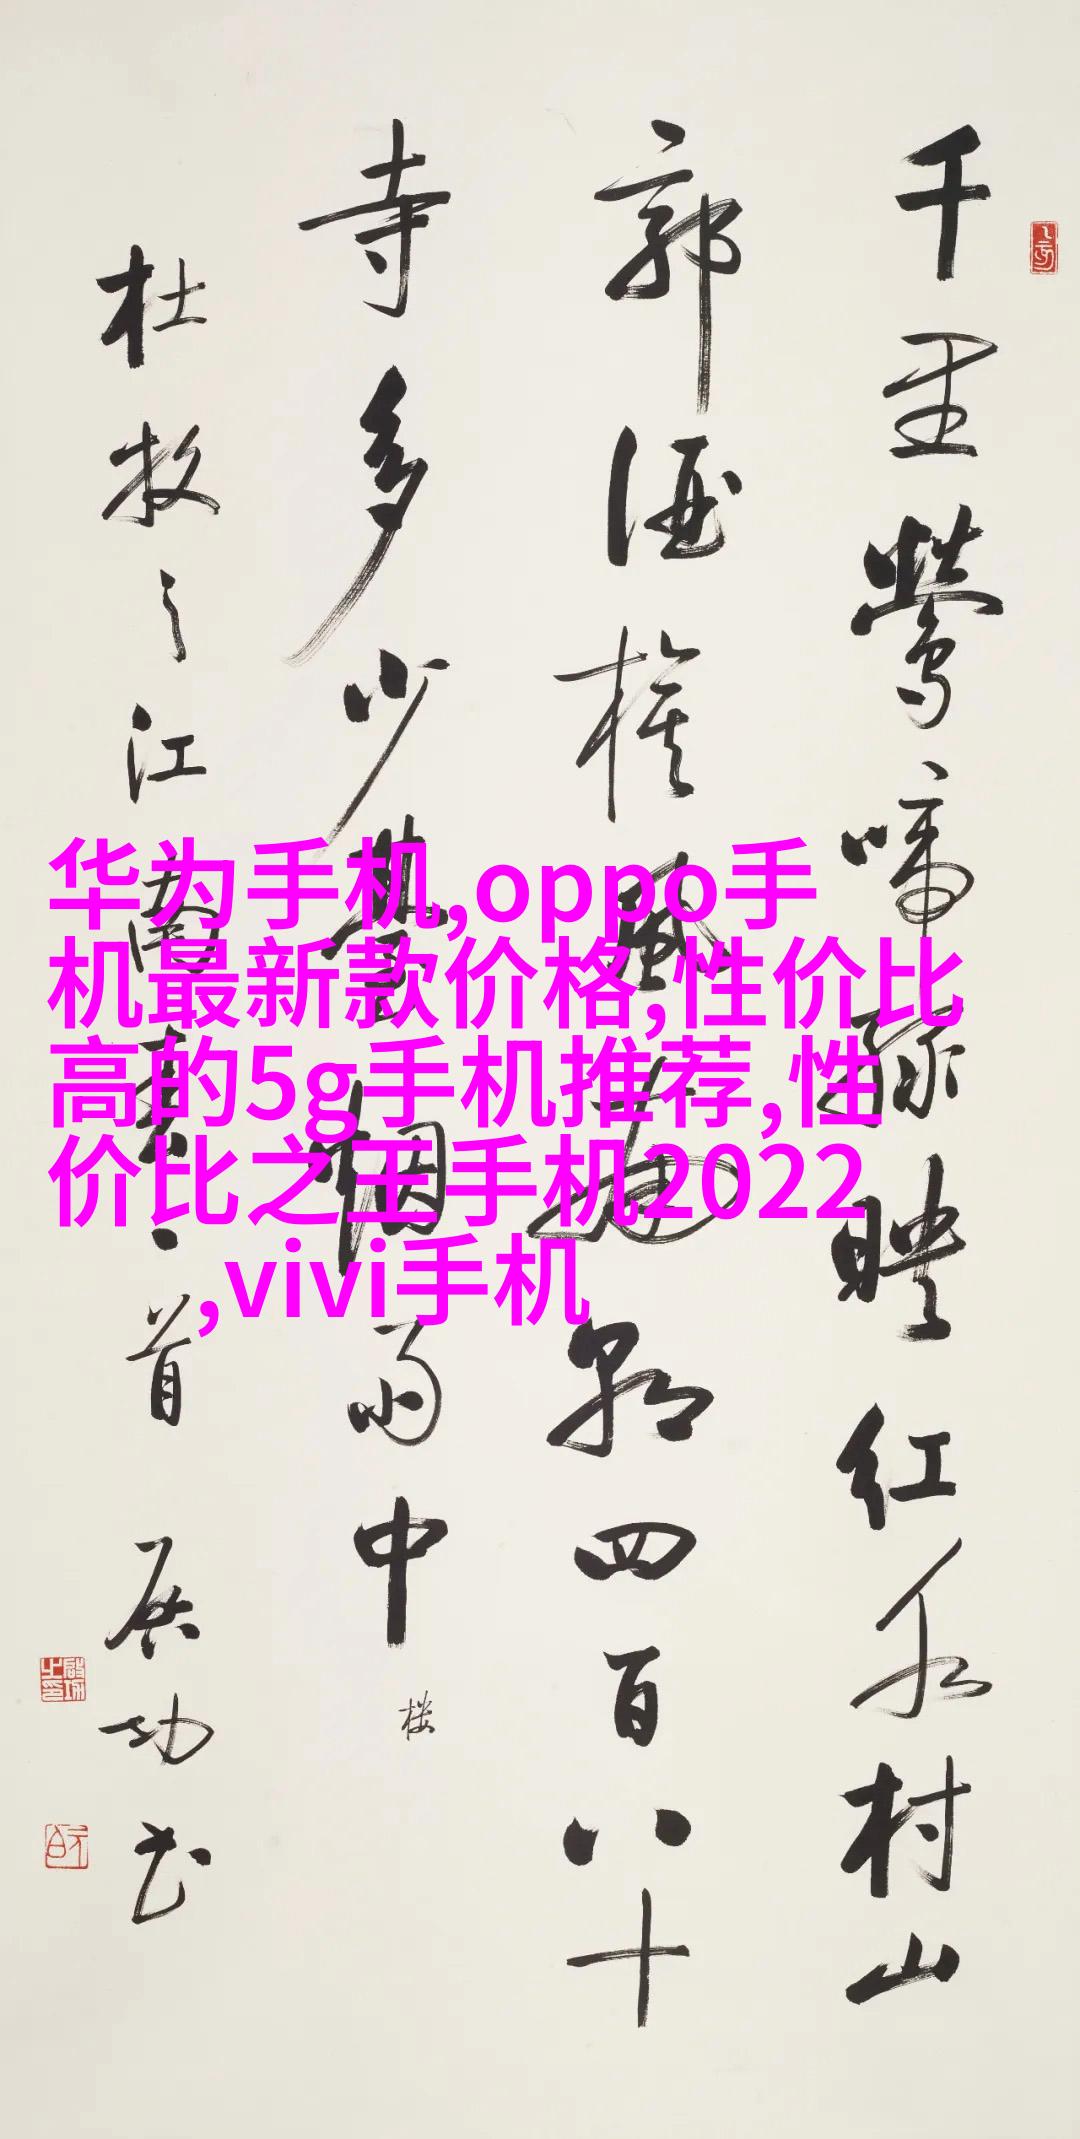 千里鶯啼綠映红水村山
郭酒旗風南朝四百八十
寺多少臺烟雨中
楼
杜牧之江南春一首 啟功书
华为手机,oppo手
机最新款价格,性价比
高的5g手机推荐,性
价比之王手机2022
,vivi手机